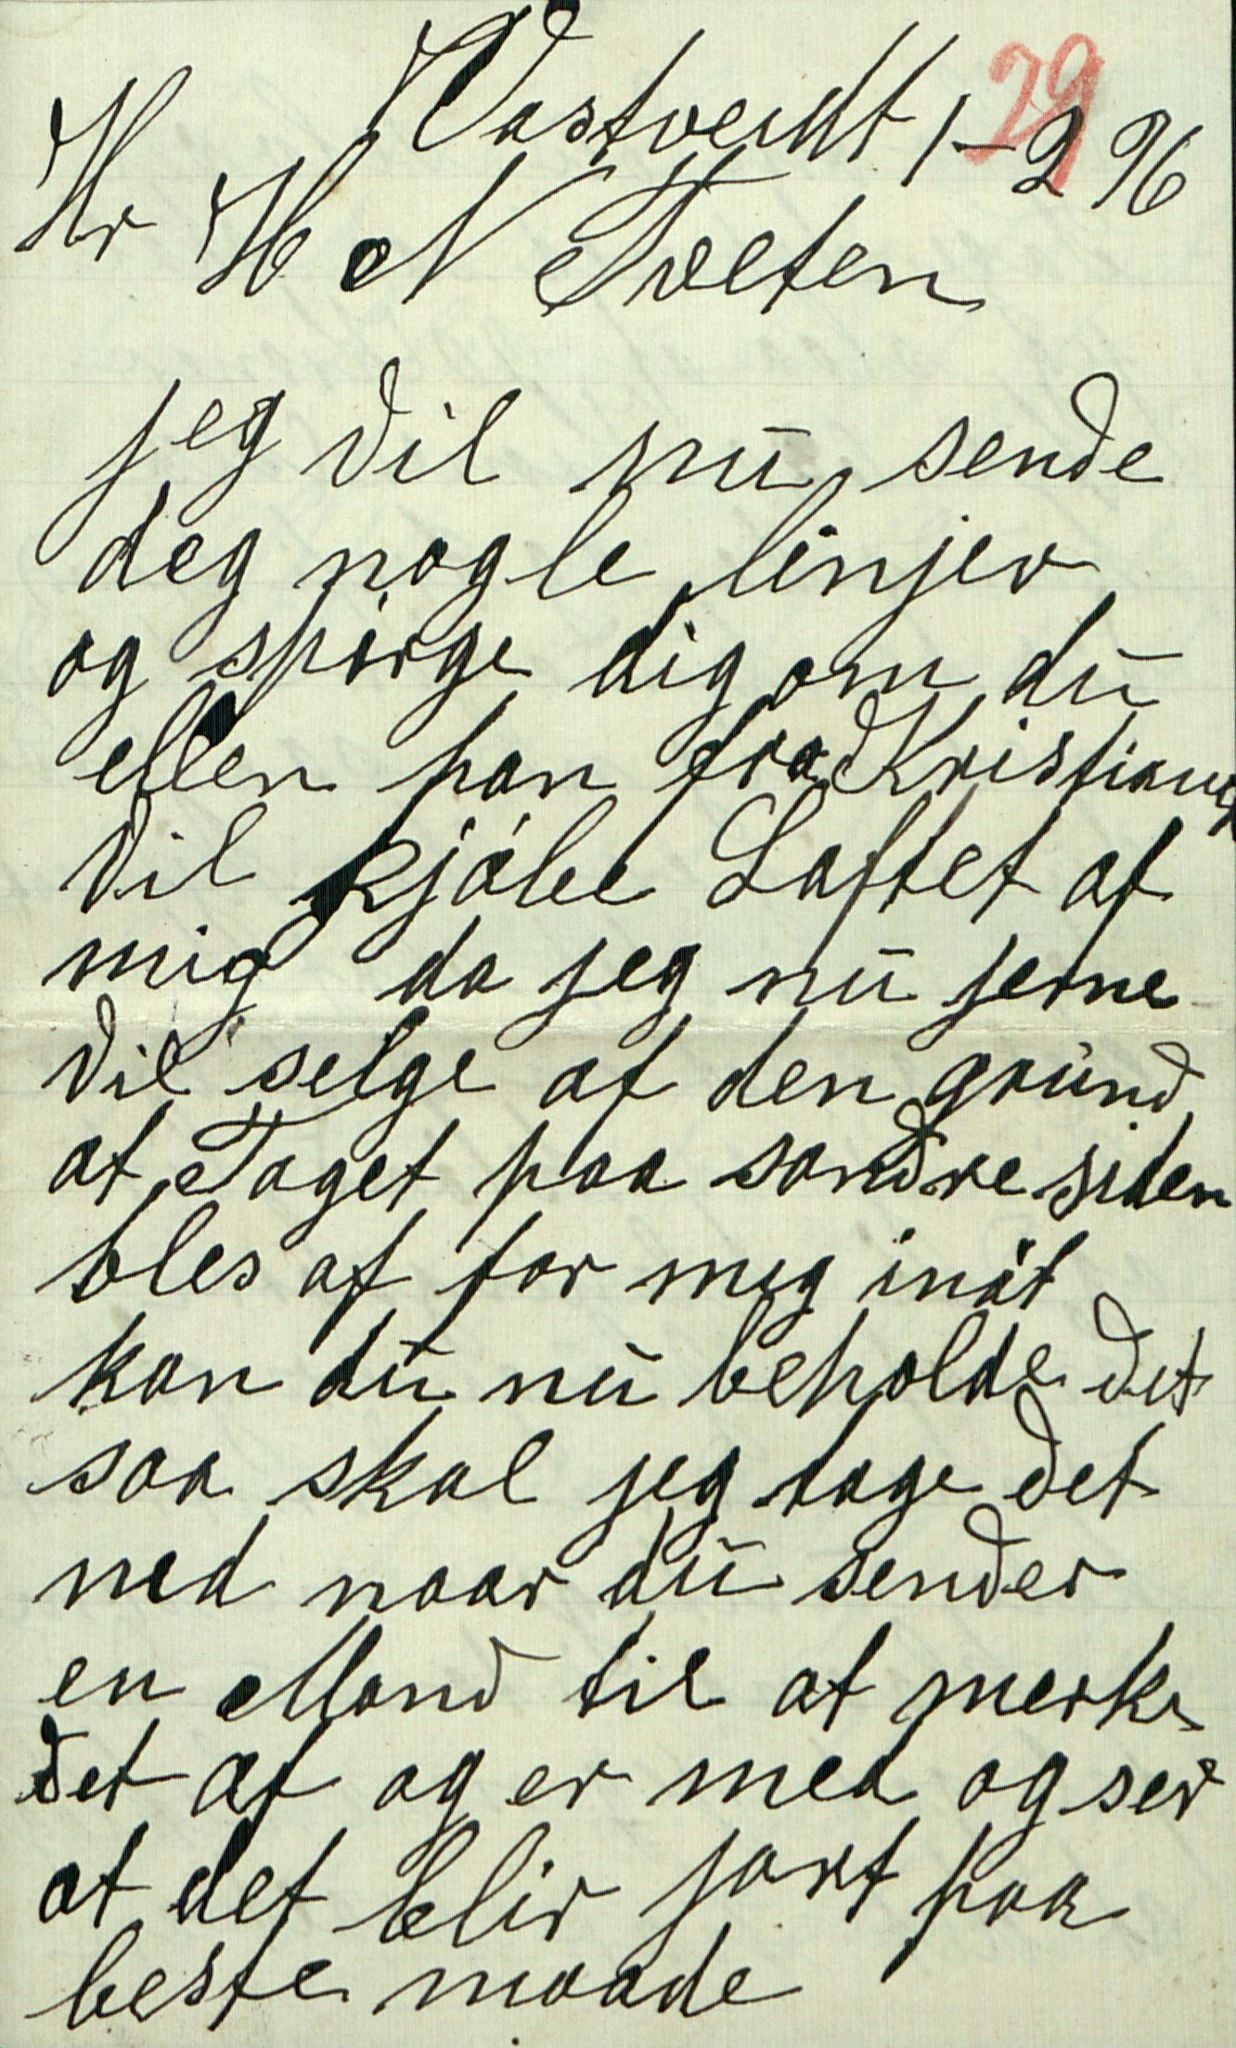 29
Vastveidt 1-2 96
Hr H N Tveten
jeg vil nu sende
deg nogle linjer
og spørge dig om du
eller han fra Kristiania
vil kjøbe Loftet af
mig da jeg nu jerne
vil selge af den grund
at Taget paa søndre siden
bles af for mig inat
kan du nu beholde det
saa skal jeg tage det
ned naar du sender
en Mand til at merke
det af og er med og ser
at det blir jort paa
beste maade